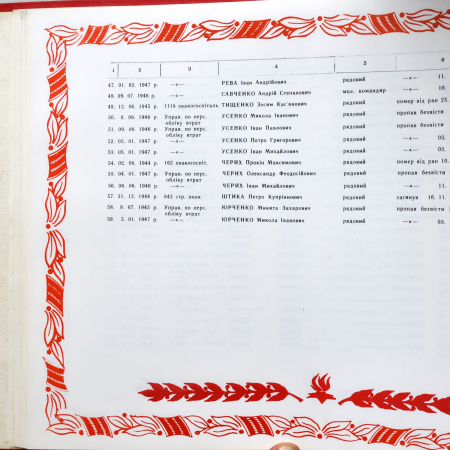 1 2 3 4 5 6
47. 01. 02. 1947 р. —«— РЕВА Іван Андрійович рядовий —«— 11.
48. 06. 07. 1946 р. —«— САВЧЕНКО Андрій Степанович мол. командир —«— 10.
49. 12. 06. 1945 р. 1118 евакогоспіталь ТИЩЕНКО Зосим Кас'янович рядовий помер від ран 25.
50. 9. 08. 1946 р. Управ. по перс. УСЕНКО Микола Іванович рядовий пропав безвісти
обліку втрат
51. 09. 08. 1946 р. Управ. по перс. УСЕНКО Іван Павлович рядовий пропав безвісти
обліку втрат
52. 05. 01. 1947 р. —«— УСЕНКО Петро Григорович рядовий —«— 03.
53. 05. 01. 1947 р. —«— УСЕНКО Іван Михайлович рядовий —«— 03.
54. 02. 08. 1944 р. 862 евакогоспіт. ЧЕРИХ Прокіп Максимович рядовий помер від ран 10.
55. 04. 01. 1947 р. Управ. по перс. ЧЕРИХ Олександр Феодосійович рядовий пропав безвісти
обліку втрат
56. 06. 06. 1946 р. —«— ЧЕРИХ Іван Михайлович рядовий —«— 11.
57. 11. 12. 1944 р. 842 стр. полк ШТИКА Петро Купріянович рядовий загинув 16. 11.
58. 9. 07. 1945 р. Управ. по перс. ЮРЧЕНКО Микита Захарович рядовий пропав безвісти
обліку втрат
59. 5. 01. 1947 р. —«— ЮРЧЕНКО Микола Іванович рядовий —«— 03.